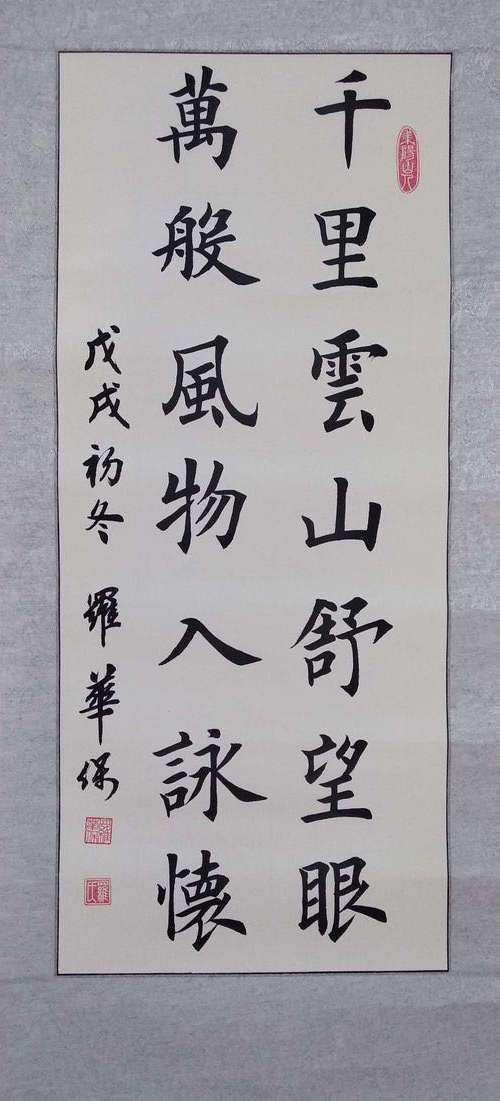 千里雲山舒望眼
萬般風物入詠懷
戊戌初冬 羅華保